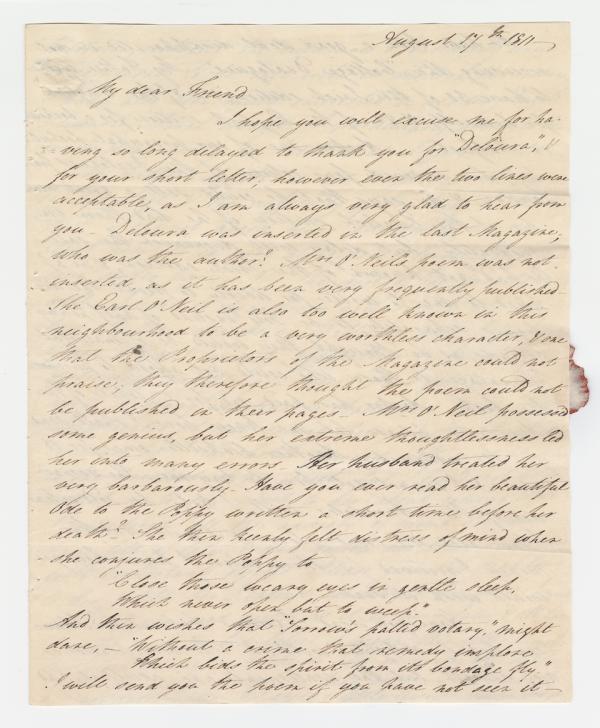 August 17th 1811
My dear Friend
I hope you will excuse me for ha-
ving so long delayed to thank you for "Deloura", &
for your short letter, however even the two lines were
acceptable, as I am always very glad to hear from
you - Deloura was inserted in the last Magazine;
who was the author? Mrs O'Neil's poem was not
inserted, as it has been very frequently published
The Earl O'Neil is also too well known in this
neighbourhood to be a very worthless character, & one
that the Proprietors of the Magazine could not
praise; they therefore thought the poem could not
be published in their pages - Mrs O'Neil possessed
some genius, but her extreme thoughtlessness led
her into many errors. Her husband treated her
very barbarously - Have you ever read her beautiful
Ode to the Poppy written a short time before her
death? She then keenly felt distress of mind when
she conjures the Poppy to
"Close those weary eyes in gentle sleep,
Which never open but to weep."
And then wishes that "Sorrow's pallid votary," might
dare, - "Without a crime that remedy implore
Which bids the spirit from its bondage fly"
I will send you the poem if you have not seen it -